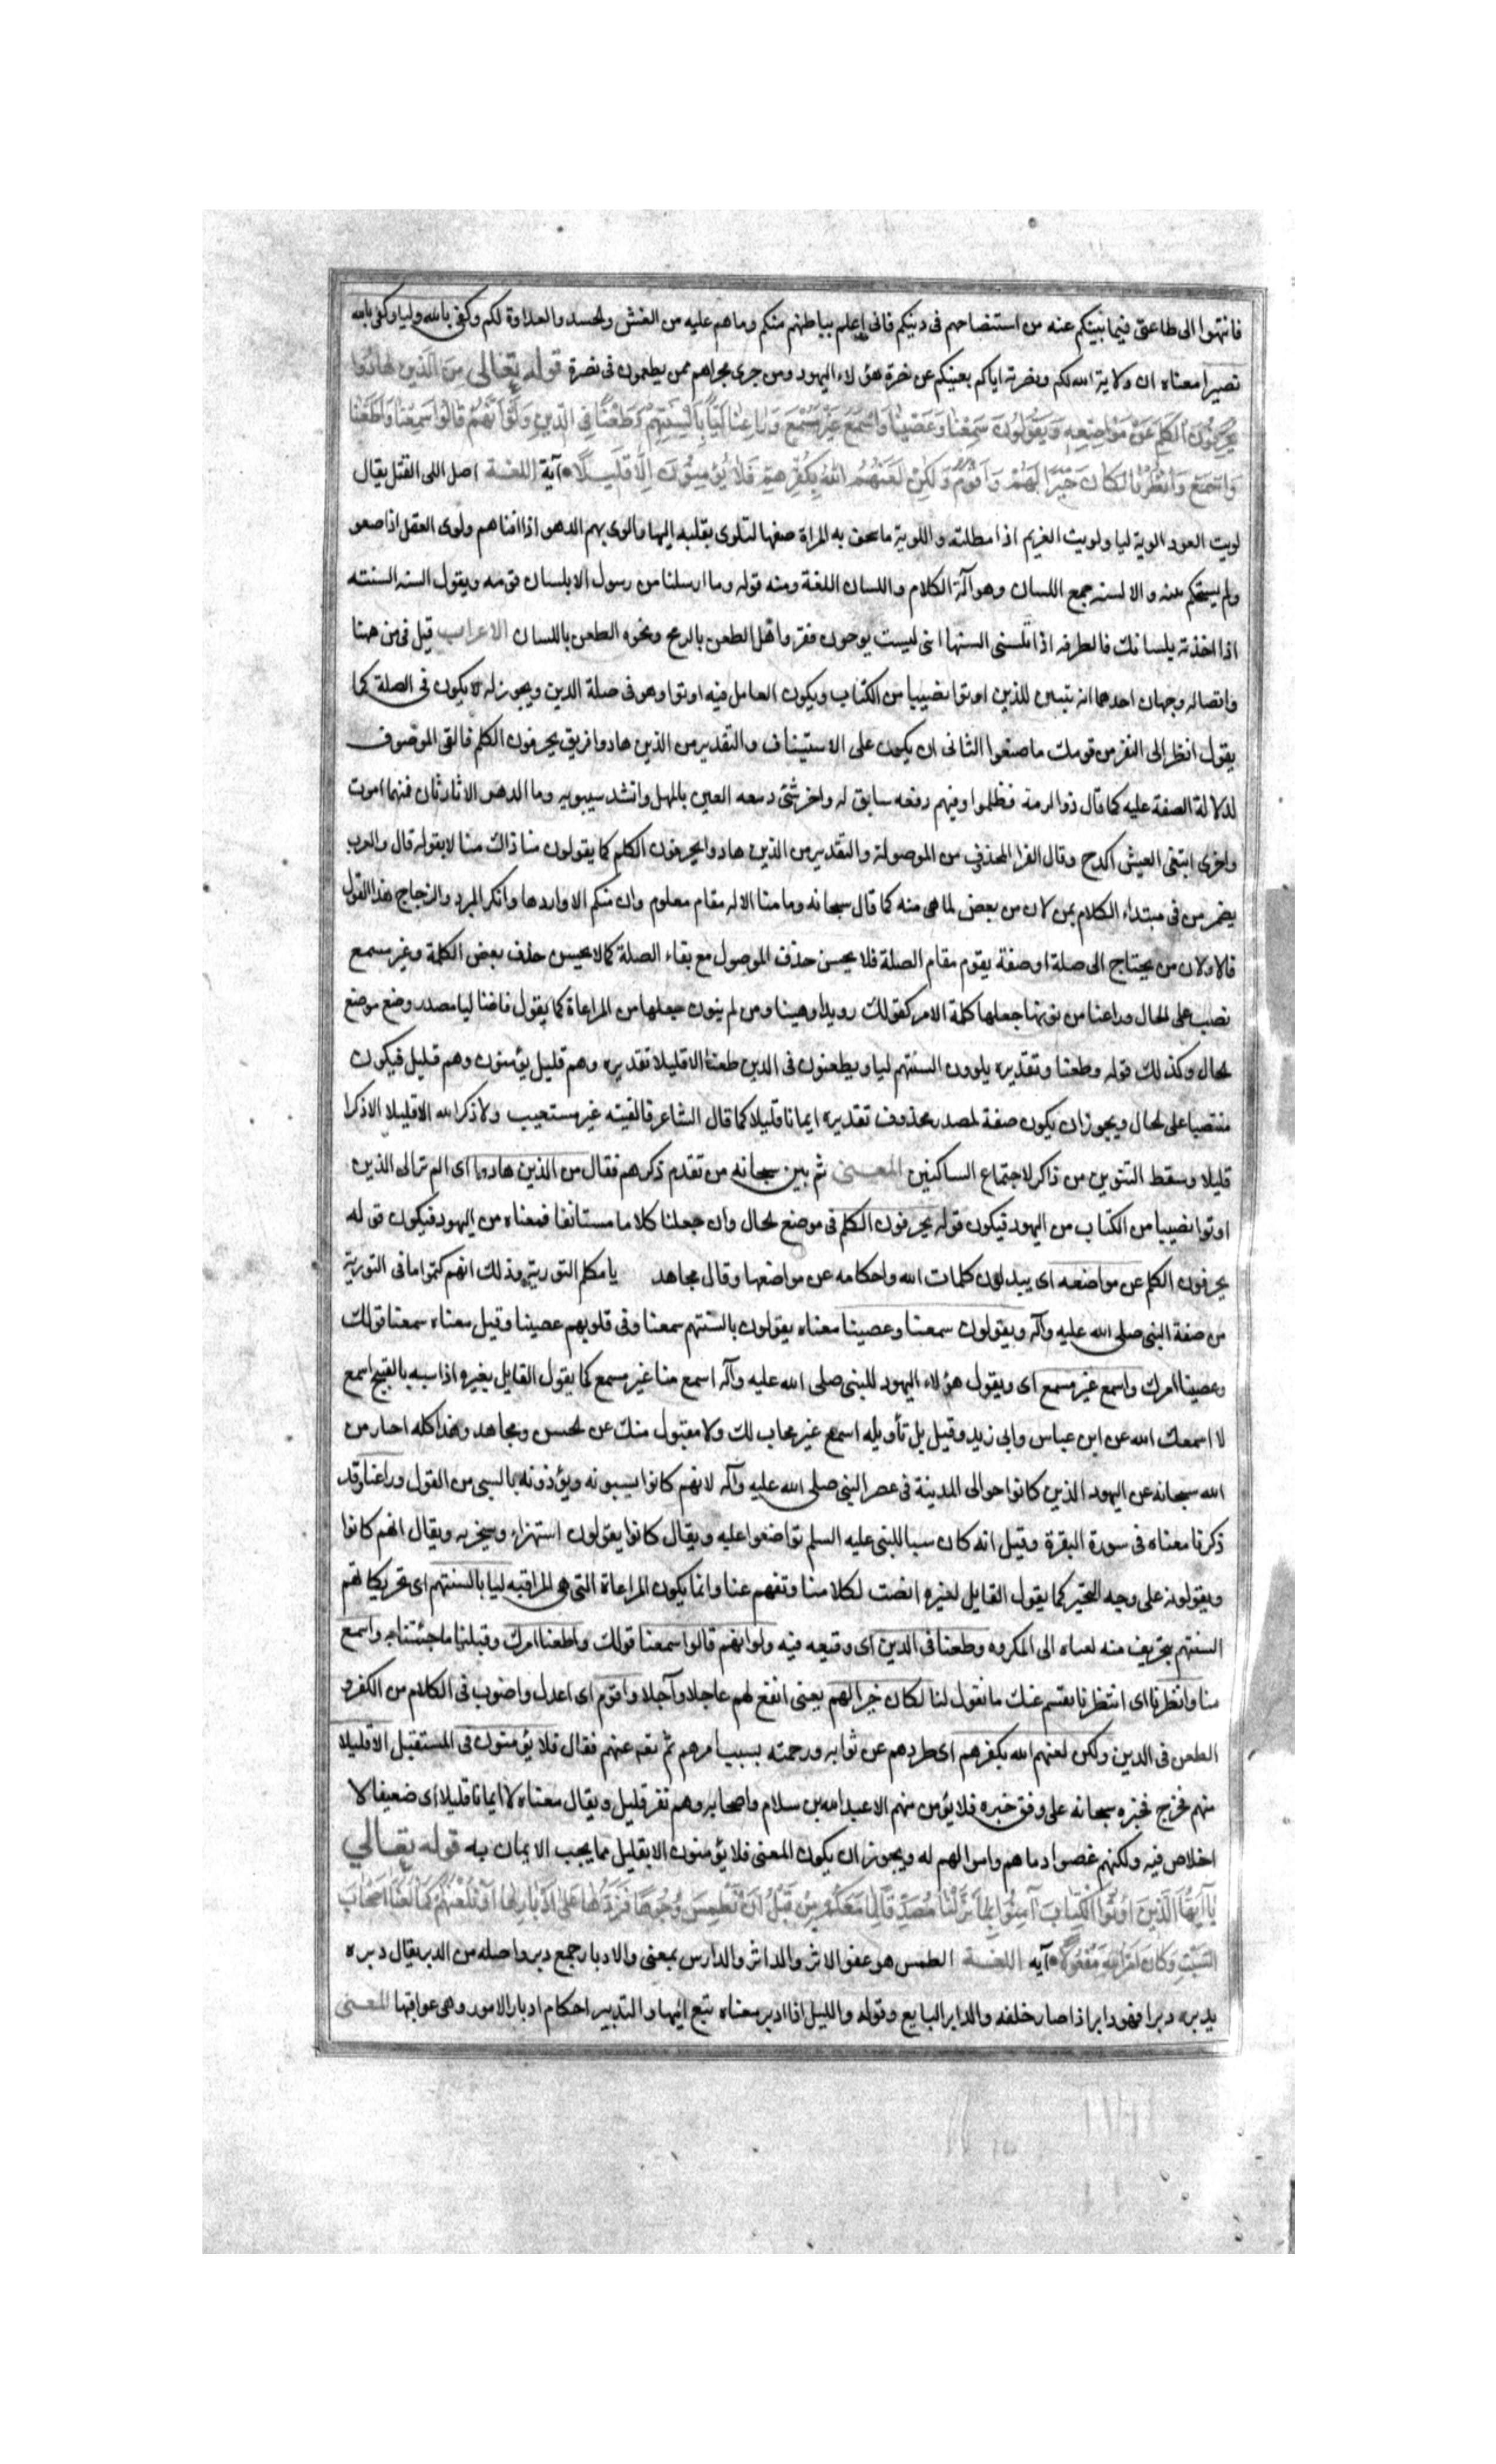 فانتهوا الى طاعتى فيما نبيتكم عنه من استنصاحهم فى دينكم فانى اعلم بباطنهم منكم وما هم عليه من الغش والحسد والعداوة لكم وكفى بالله وليا وكفى بالله
نصيرا معناه ان ولاية الله لكم ونصرته اياكم يغنيكم عن نصرة هؤلاء اليهود ومن جرى مجراهم ممن يطمعون فى نصرة قوله تعالى من الذين هادوا
يحرفون الكلم عن مواضعه ويقولون سمعنا وعصينا واسمع غير مسمع وراعنا ليا بالسنتهم وطعنا فى الدين ولو انهم قالوا سمعنا واطعنا
واسمع وانظرنا لكان خيرا لهم واقوم ولكن لعنهم الله بكفرهم فلا يؤمنون الا قليلا آية اللغة اصل اللى الفتل يقال
لويت العود الويه ليا ولويت الغريم اذا مطلته واللوية ما تتحف به المراة ضيفها لتلوى بقلبه اليها والوى بهم الدهر اذا افناهم ولوى البقل اذا صعر
ولم يستحكم يبسه والالسنه جمع اللسان وهو آلة الكلام واللسان اللغة ومنه قوله وما ارسلنا من رسول الا بلسان قومه ويقول السنه السنته
اذا اخذته بلسانك قال طرفه اذا تلسنى السنتها اننى ليست بوهون فقر واصل الطعن بالرمح ونحوه الطعن باللسان الاعراب قيل فى من هنا
واتصاله وجهان احدهما انه تبيين للذين اوتوا نصيبا من الكتاب ويكون العامل فيه اوتوا وهو فى صلة الذين ويجوز له لا يكون فى الصلة كما
يقول انظر الى النفر من قومك ما صنعوا الثانى ان يكون على الاستيناف والتقدير من الذين هادوا فريق يحرفون الكلم فالقى الموصوف
لدلالة الصفة عليه كما قال ذو الرمة فظلوا ومنهم دمعه سابق له واخر تثنى دمعه العين بالمهل وانشد سيبويه وما الدهر الا تارتان فمنهما اموت
واخرى ابتغى العيش اكدح وقال الفرا المحذوف من الموصولة والتقدير من الذين هادوا يحرفون الكلم كما يقولون منا ذاك منا لا يقوله قال والعرب
يضمر من فى مبتداء الكلام بمن لان من بعض لما هى منه كما قال سبحانه وما منا الا له مقام معلوم وان منكم الا واردها وانكر المبرد والزجاج هذا القول
قالا ولان من يحتاج الى صلة او صفة يقوم مقام الصلة فلا يحسن حذف الموصول مع بقاء الصلة كما لا يحسن حذف بعض الكلمة وغير مسمع
نصب على الحال وراعنا من نونها جعلها كلمة الامر كقولك رويدا وهينا ومن لم ينون جعلها من المراعاة كما يقول قاضنا ليا مصدر وضع موضع
الحال وكذلك قوله وطعنا وتقديره يلوون السنتهم ليا ويطعنون فى الدين طعنا الا قليلا تقديره وهم قليل يؤمنون وهم قليل فيكون
منتصبا على الحال ويجوز ان يكون صفة لمصدر محذوف تقديره ايمانا قليلا كما قال الشاعر فالفيته غير مستعيب ولا ذكر الله الا قليلا الا ذكرا
قليلا وسقط التنوين من ذاكر لاجتماع الساكنين المعنى ثم بين سبحانه من تقدم ذكرهم فقال من الذين هادوا اى الم تر الى الذين
اوتوا نصيبا من الكتاب من اليهود فيكون قوله يحرفون الكلم فى موضع الحال وان جعلنا كلاما مستانفا فمعناه من اليهود فيكون قوله
يحرفون الكلم عن مواضعه اى يبدلون كلمات الله واحكامه عن مواضعها وقال مجاهد يا مكلم التورية وذلك انهم كتموا ما فى التورية
من صفة النبى صلى الله عليه وآله ويقولون سمعنا وعصينا معناه يقولون بالسنتهم سمعنا وفى قلوبهم عصينا وقيل معناه سمعنا قولك
وعصينا امرك واسمع غير مسمع اى ويقول هؤلاء اليهود للنبى صلى الله عليه وآله اسمع منا غير مسمع كما يقول القايل بغيره اذا سبه بالقبيح اسمع
لا اسمعك الله عن ابن عباس وابى زيد وقيل بل تأويله اسمع غير مجاب لك ولا مقبول منك عن الحسن ومجاهد وهذا كله اخبار من
الله سبحانه عن اليهود الذين كانوا حوالى المدينة فى عصر النبى صلى الله عليه وآله لانهم كانوا يسبونه ويؤذونه بالسيى من القول وراعنا وقد
ذكرنا معناه فى سورة البقرة وقيل انه كان سبا للنبى عليه السلم تواضعوا عليه ويقال كانوا يقولون استهزاء وسخريه ويقال انهم كانوا
ويقولونه على وجه التجبر كما يقول القايل لغيره انصت لكلامنا وتفهم عنا وانما يكون المراعاة التى هى المراقبه ليا بالسنتهم اى تحريكا لهم
السنتهم بتحريف منه لمعناه الى المكروه وطعنا فى الدين اى وقيعه فيه ولو انهم قالوا سمعنا قولك واطعنا امرك وقبلنا ما جئتنا به واسمع
منا وانظرنا اى انتظرنا نفهم عنك ما تقول لنا لكان خيرا لهم يعنى انفع لهم عاجلا وآجلا واقوم اى اعدل واصوب فى الكلام من الكفر و
الطعن فى الدين ولكن لعنهم الله بكفرهم اى طردهم عن ثوابه ورحمته بسبب امرهم ثم عنهم فقال فلا يؤمنون فى المستقبل الا قليلا
منهم فخرج مخبره سبحانه على وفق خبره فلا يؤمن منهم الا عبد الله بن سلام واصحابه وهم نفر قليل ويقال معناه لا ايمانا قليلا اى ضعيفا لا
اخلاص فيه ولكنهم عصموا دماهم واموالهم له ويجوز ان يكون المعنى فلا يؤمنون الا بقليل مما يجب الايمان به قوله تعالى
يا ايها الذين اوتوا الكتاب آمنوا بما نزلنا مصدقا لما معكم من قبل ان نطمس وجوها فنردها على ادبارها او نلعنهم كما لعنا اصحاب
السبت وكان امر الله مفعولا آيه اللغة الطمس هو عفو الاثر والداثر والدارس بمعنى والادبار جمع دبر واصله من الدبر يقال دبره
يدبره دبرا فهو دابر اذا صار خلفه والدابر التابع وقوله والليل اذا ادبر معناه تبع النهار والتدبير احكام ادبار الامور وهى عواقبها المعنى